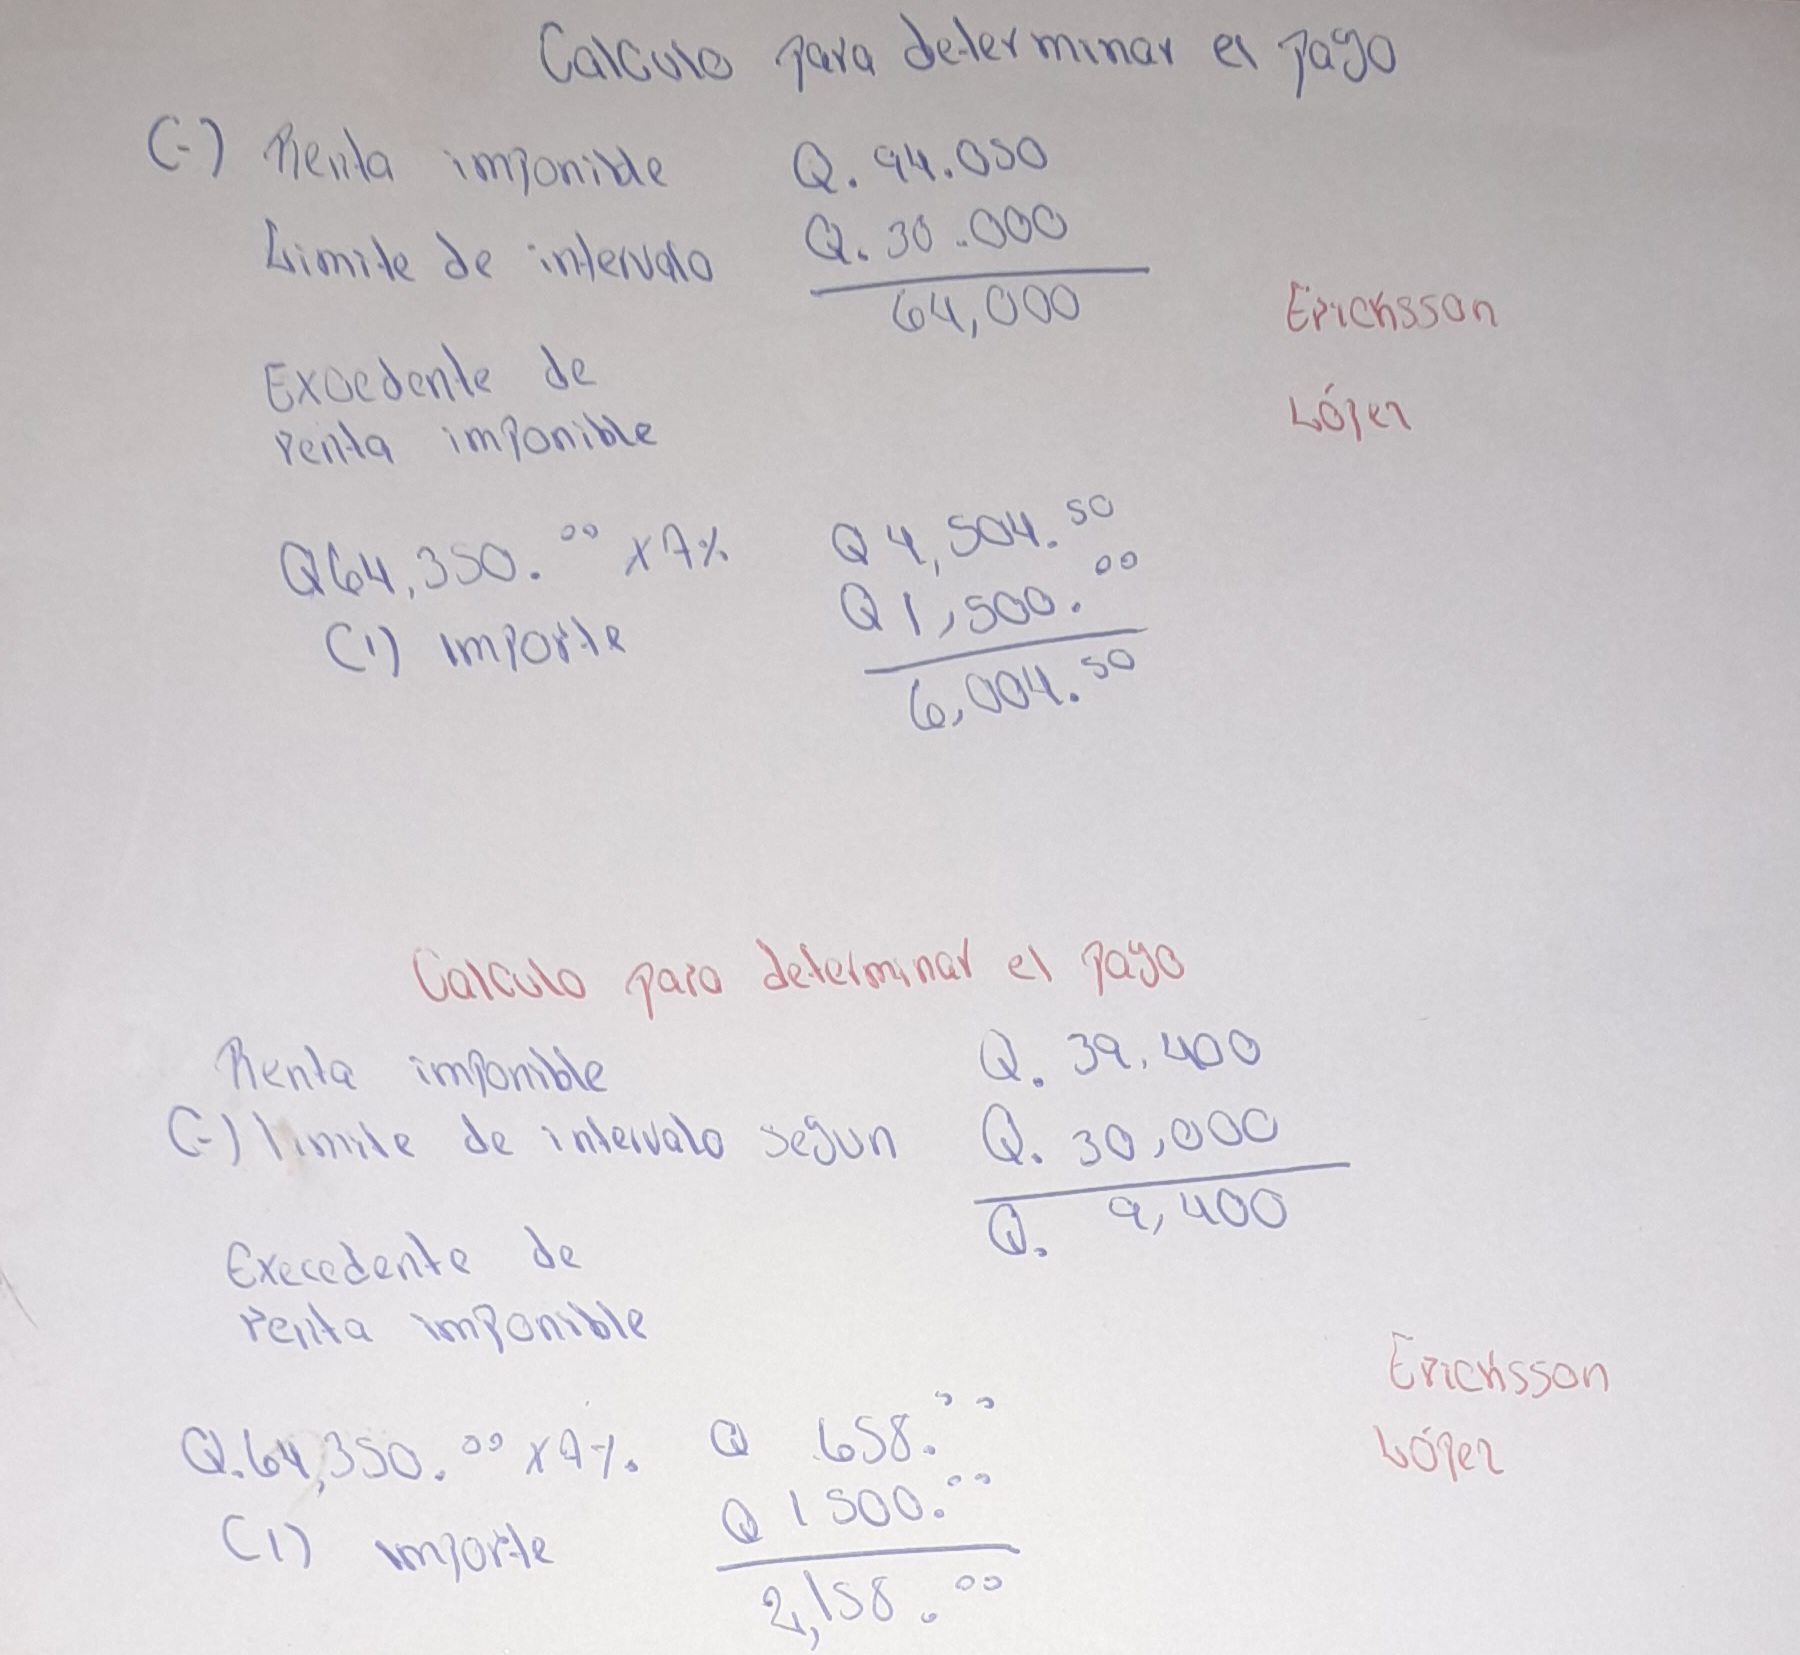 Calculo para determinar el pago
(-) Renta imponible Q. 94.050
Limite de intervalo Q. 30.000
64,000
Ericksson
Excedente de
López
renta imponible
Q64,350.00 x 7% Q 4,504.50
(1) importe Q 1,500.00
6,004.50
Calculo para determinar el pago
Renta imponible Q. 39,400
(-) limite de intervalo segun Q. 30,000
Q. 9,400
Execedente de
renta imponible
Ericksson
Q.64,350.00 x 7%. Q 658.00
López
(1) importe Q 1500.00
2,158.00